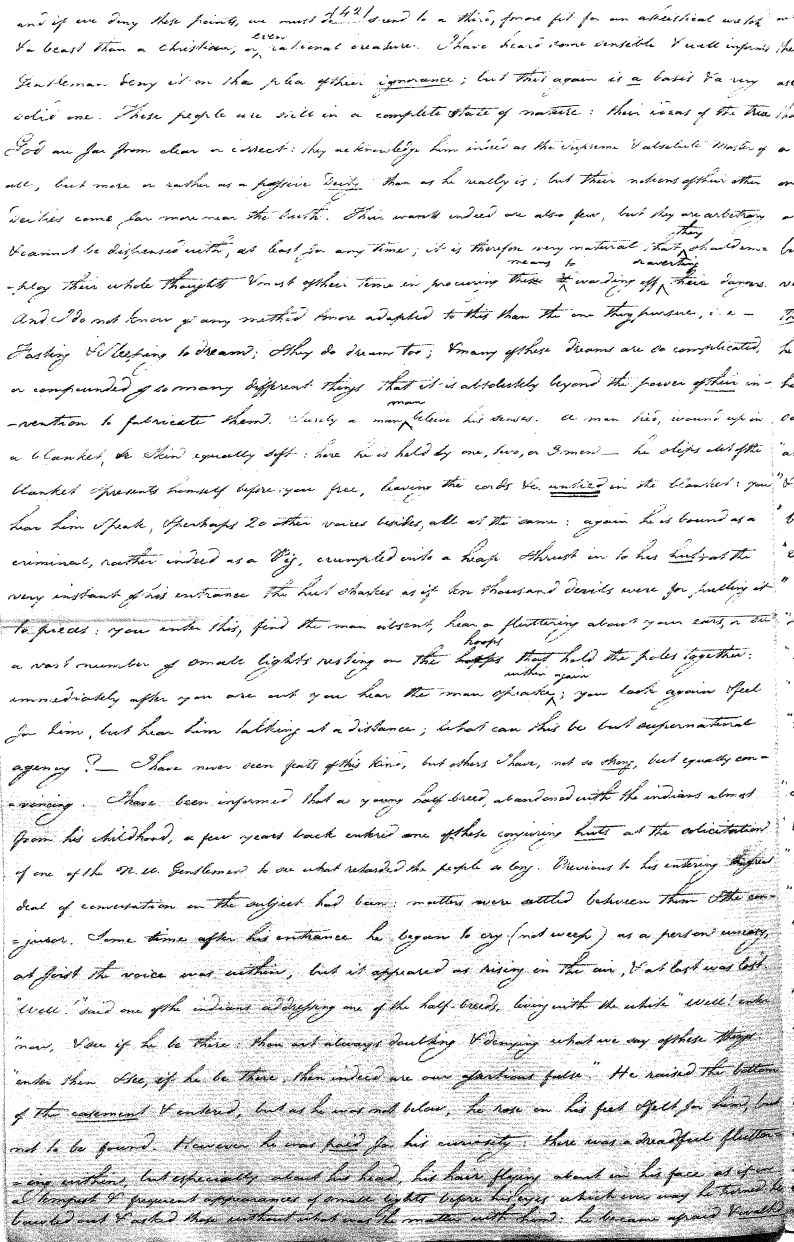 [42]
and if we deny these points, we must descend to a third, far more fit for an atheistical wretch
& a beast than a Christian, or even rational creature. I have heard some sensible & well informed
Gentleman deny it on the plea of their ignorance; but this again is a basis & a very
solid one. These people are still in a complete state of nature: their ideas of the true
God are far from clear or correct: they acknowledge him indeed as the Supreme & absolute Master of
all, but more or rather as a passive Deity than as he really is; but their notions of their other
Deities come far more near the truth. Their wants indeed are also few, but they are arbitrary
& cannot be dispensed with, at least for any time; it is therefore very natural that they should em=
=ploy their whole thoughts & most of their time in procuring means to warding off averting their dangers.
And I do not know of any method more adapted to this than the one they pursue, i.e –
Fasting & Sleeping to dream; They do dream too; & many of these dreams are so complicated,
or compounded of so many different things that it is absolutely beyond the power of their in=
=vention to fabricate them. Surely a man man believe his senses. a man tied, wound up in
a blanket, & Skin equally soft: here he is held by one, two, or 3 men — he slips out of the
blanket & presents himself before you free, leaving the cords &c. untied in the blanket: you
hear him Speak, & perhaps 20 other voices besides, all at the same: again he is bound as a
criminal, rather indeed as a Pig, crumpled into a heap & thrust in to his hut; at the
very instant of his entrance the hut shakes as if ten thousand devils were for pulling it
to pieces: you enter this, find the man absent, hear a fluttering about your ears, or see
a vast number of small lights resting on the hoops that hold the poles together:
immediately after you are out you hear the man speake within again; you look again & feel
for him, but hear him talking at a distance; What can this be but supernatural
agency? — I have never seen feats of this kind, but others I have, not so strong, but equally con=
=vincing. I have been informed that a young half-breed, abandoned with the indians almost
from his childhood, a few years back entered one of these conjuring huts at the solicitation
of one of the N.W. Gentlemen to see what retarded the people so long. Previous to his entering a great
deal of conversation on the subject had been: matters were settled between them & the con=
=juror. Some time after his entrance he began to cry (not weep) as a person uneasy,
at first the voice was within, but it appeared as rising in the air, & at last was lost.
"Well!" said one of the indians addressing one of the half-breeds, living with the white "Well! enter
"now, & see if he be there: thou art always doubting & denying what we say of these things:
"enter then & see, if he be there, then indeed are our assertions false" He raised the bottom
of the casement & entered, but as he was not below, he rose on his feet & felt for him, but
not to be found. However he was paid for his curiosity: there was a dreadful flutter=
=ing within, but especially about his head, his hair flying about in his face as if in
a tempest & frequent appearances of small lights before his eyes which ever way he turned: he
bawled out & asked those without what was the matter with him: he became afraid & walked